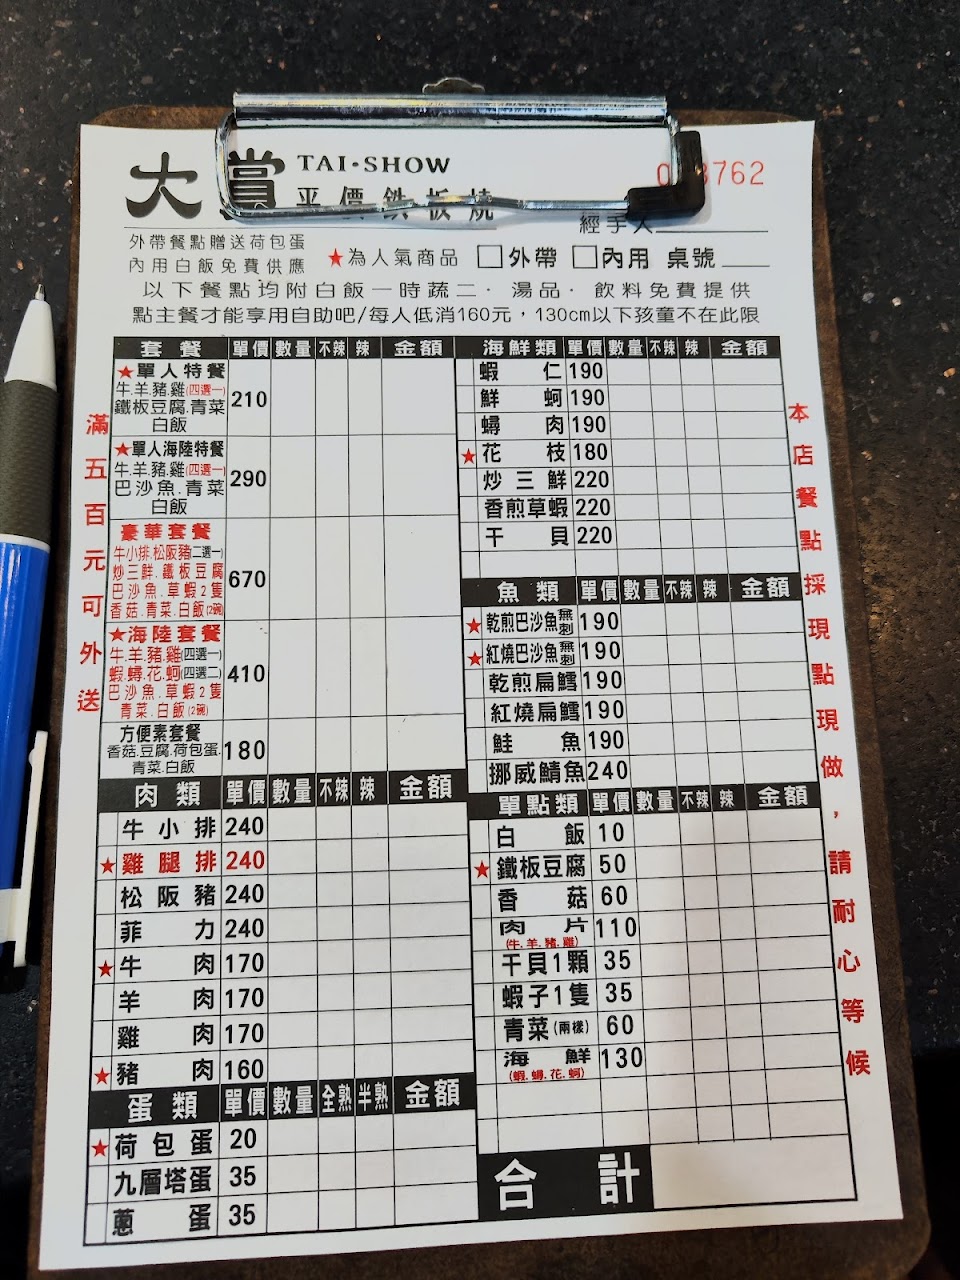 大賞 TAI·SHOW
平價鉄板燒
3762
經手人
外帶餐點贈送荷包蛋
內用白飯免費供應
★為人氣商品 □外帶 □內用 桌號
以下餐點均附白飯一時蔬二．湯品．飲料免費提供
點主餐才能享用自助吧/每人低消160元，130cm以下孩童不在此限
滿五百元可外送
套餐 單價 數量 不辣 辣 金額
★單人特餐 210
牛.羊.豬.雞(四選一)
鐵板豆腐.青菜
白飯
★單人海陸特餐 290
牛.羊.豬.雞(四選一)
巴沙魚.青菜
白飯
豪華套餐 670
牛小排.松阪豬(二選一)
炒三鮮.鐵板豆腐
巴沙魚.草蝦2隻
香菇.青菜.白飯(2碗)
★海陸套餐 410
牛.羊.豬.雞(四選一)
蝦.蟳.花.蚵(四選二)
巴沙魚.草蝦2隻
青菜.白飯(2碗)
方便素套餐 180
香菇.豆腐.荷包蛋.
青菜.白飯
肉類 單價 數量 不辣 辣 金額
牛小排 240
★雞腿排 240
松阪豬 240
菲力 240
★牛肉 170
羊肉 170
雞肉 170
★豬肉 160
蛋類 單價 數量 全熟 半熟 金額
★荷包蛋 20
九層塔蛋 35
蔥蛋 35
海鮮類 單價 數量 不辣 辣 金額
蝦仁 190
鮮蚵 190
蟳肉 190
★花枝 180
炒三鮮 220
香煎草蝦 220
干貝 220
魚類 單價 數量 不辣 辣 金額
★乾煎巴沙魚無刺 190
★紅燒巴沙魚無刺 190
乾煎扁鱈 190
紅燒扁鱈 190
鮭魚 190
挪威鯖魚 240
單點類 單價 數量 不辣 辣 金額
白飯 10
★鐵板豆腐 50
香菇 60
肉片 110
(牛.羊.豬.雞)
干貝1顆 35
蝦子1隻 35
青菜(兩樣) 60
海鮮 130
(蝦.蟳.花.蚵)
合計
本店餐點採現點現做，請耐心等候